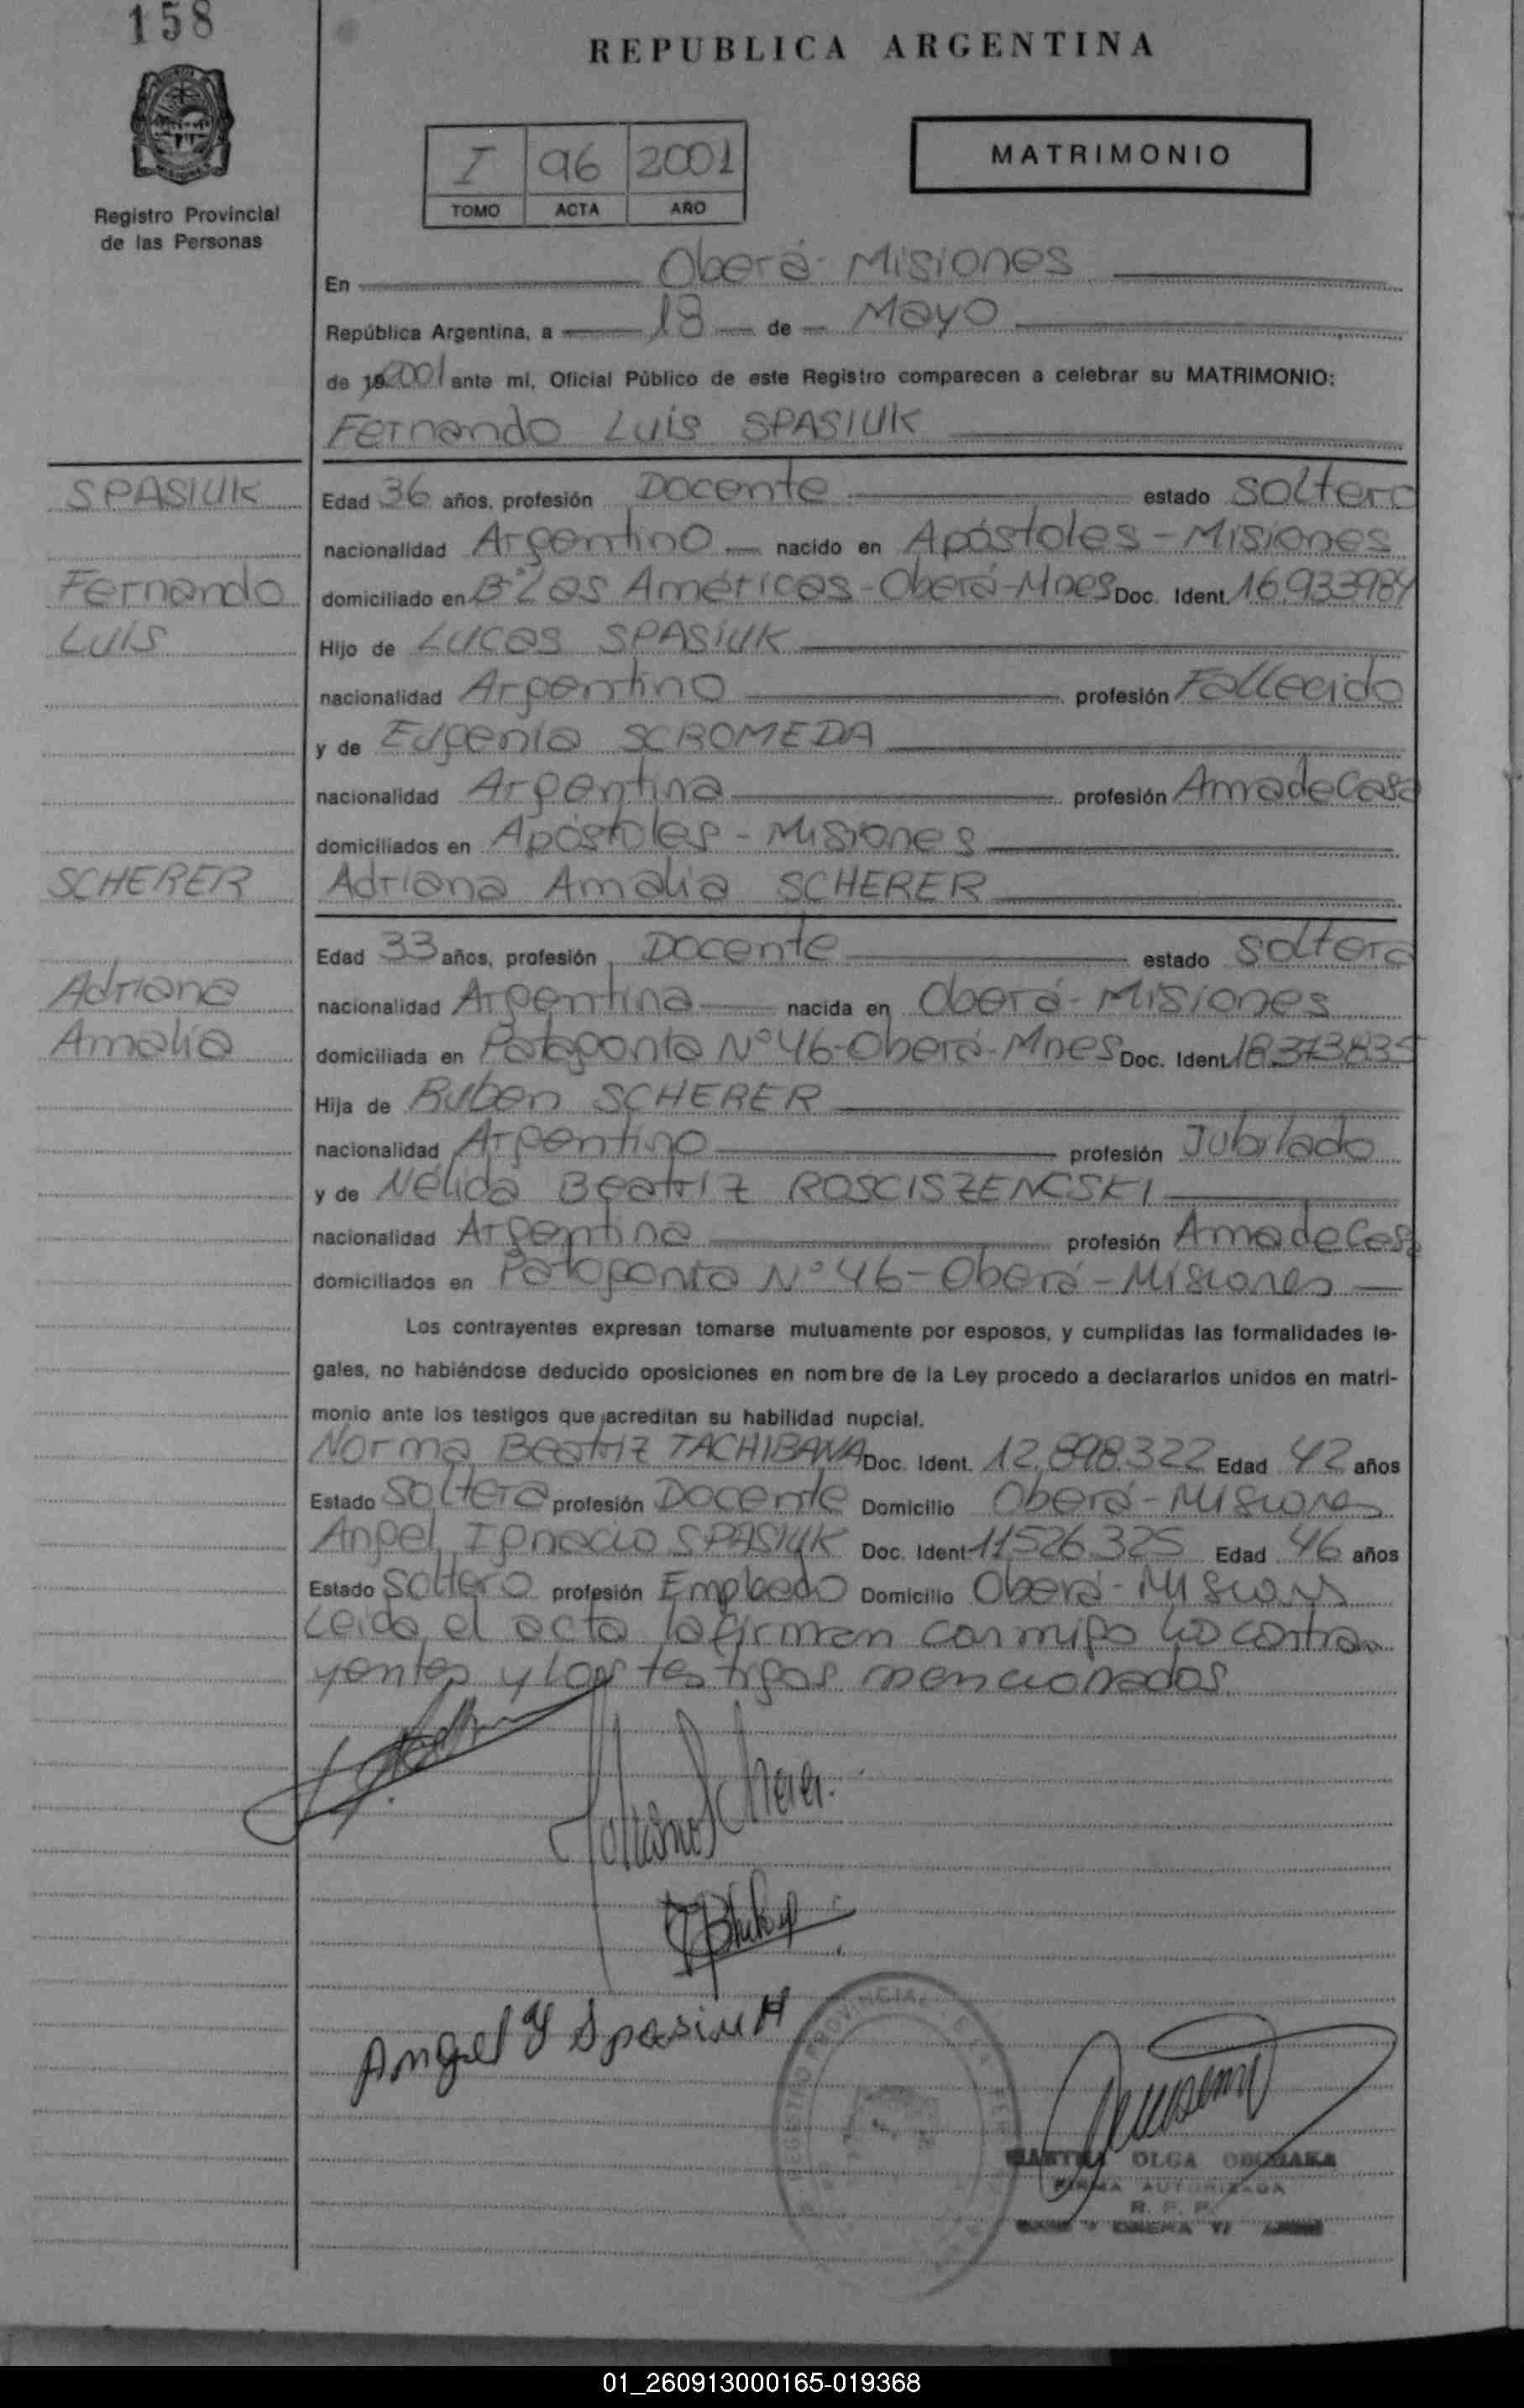 158
REPUBLICA ARGENTINA
Registro Provincial
de las Personas
I 96 2001
TOMO ACTA AÑO
MATRIMONIO
En Oberá - Misiones
República Argentina, a 18 de Mayo
de 2001 ante mí, Oficial Público de este Registro comparecen a celebrar su MATRIMONIO:
Fernando Luis SPASIUK
SPASIUK
Edad 36 años, profesión Docente estado Soltero
nacionalidad Argentino nacido en Apóstoles - Misiones
Fernando
domiciliado en B° Las Américas - Oberá - Mnes Doc. Ident. 16.933984
Luis
Hijo de Lucas SPASIUK
nacionalidad Argentino profesión Fallecido
y de Eugenia SCROMEDA
nacionalidad Argentina profesión Ama de Casa
domiciliados en Apóstoles - Misiones
SCHERER
Adriana Amalia SCHERER
Edad 33 años, profesión Docente estado Soltera
Adriana
nacionalidad Argentina nacida en Oberá - Misiones
Amalia
domiciliada en Patagonia N° 46 - Oberá - Mnes Doc. Ident. 18.373.835
Hija de Ruben SCHERER
nacionalidad Argentino profesión Jubilado
y de Nélida Beatriz ROSCISZENCSKI
nacionalidad Argentina profesión Ama de Casa
domiciliados en Patagonia N° 46 - Oberá - Misiones
Los contrayentes expresan tomarse mutuamente por esposos, y cumplidas las formalidades le-
gales, no habiéndose deducido oposiciones en nombre de la Ley procedo a declararlos unidos en matri-
monio ante los testigos que acreditan su habilidad nupcial.
Norma Beatriz TACHIBANA Doc. Ident. 12.898.322 Edad 42 años
Estado Soltera profesión Docente Domicilio Oberá - Misiones
Angel Ignacio SPASIUK Doc. Ident. 11.526.325 Edad 46 años
Estado Soltero profesión Empleado Domicilio Oberá - Misiones
Leida el acta la firman conmigo los contra-
yentes y los testigos mencionados
Angel Y Spasiuk
OLGA
FIRMA AUTORIZADA
R. P. P.
01_260913000165-019368